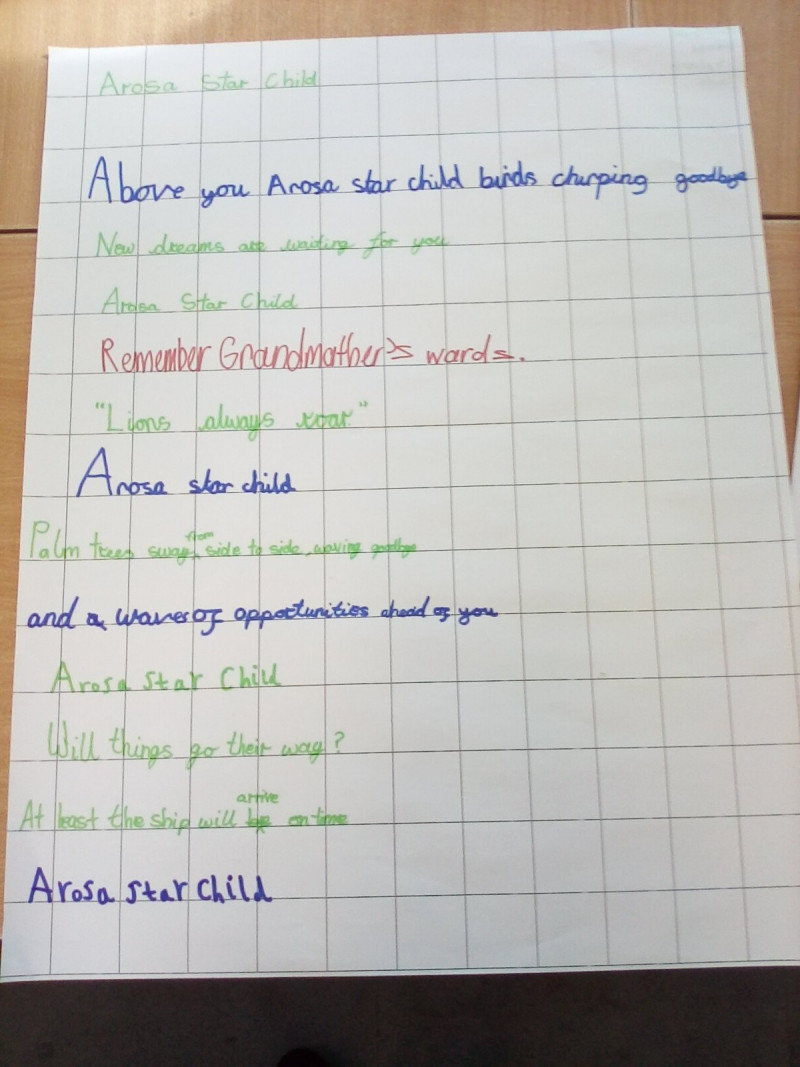 Arosa Star Child
Above you Arosa star child birds chirping goodbye
New dreams are waiting for you
Arosa Star Child
Remember Grandmother's words.
"Lions always roar."
Arosa star child
Palm trees sway from side to side, waving goodbye
and a waves of opportunities ahead of you
Arosa star Child
Will things go their way?
At least the ship will arrive on time
Arosa star child